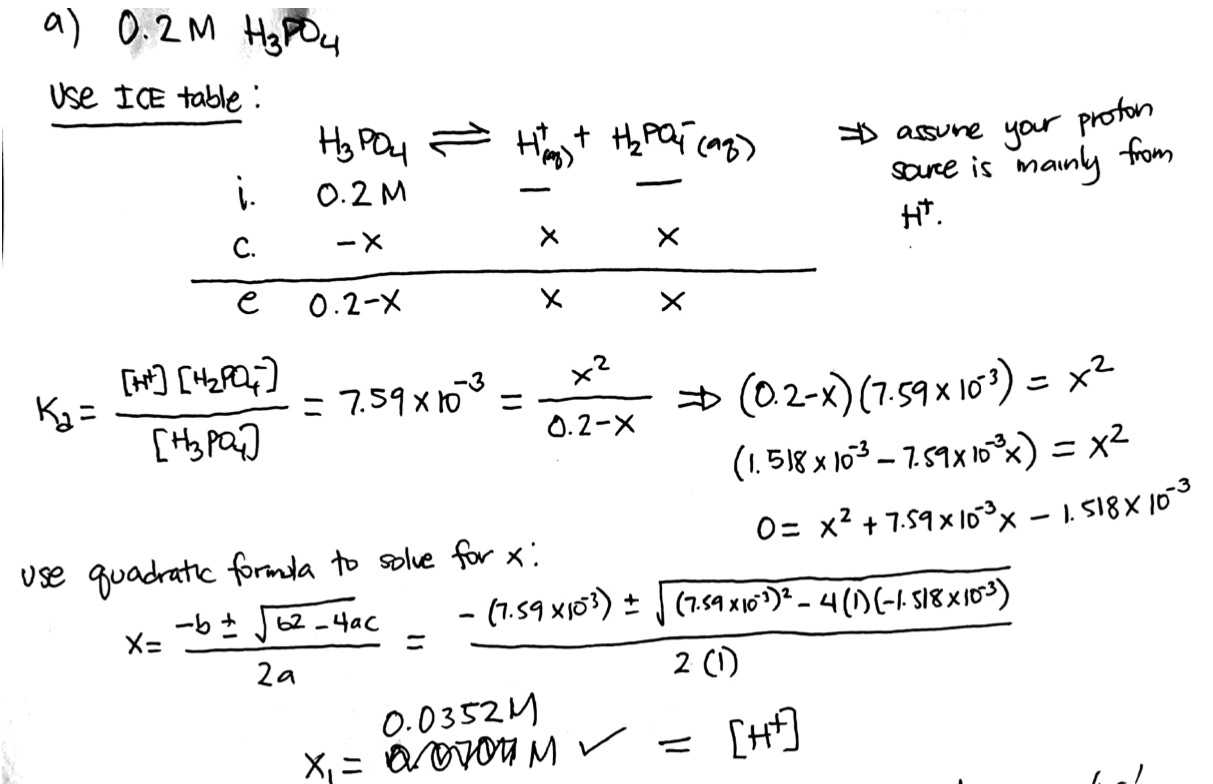 a) 0.2M H₃PO₄
Use ICE table:
H₃PO₄ ⇌ H⁺(aq) + H₂PO₄⁻(aq)
⇒ assume your proton
source is mainly from
H⁺.
i. 0.2M — —
c. -x x x
e 0.2-x x x
Ka = [H⁺][H₂PO₄⁻] / [H₃PO₄] = 7.59 x 10⁻³ = x² / 0.2-x ⇒ (0.2-x)(7.59 x 10⁻³) = x²
(1.518 x 10⁻³ - 7.59 x 10⁻³x) = x²
0 = x² + 7.59 x 10⁻³x - 1.518 x 10⁻³
use quadratic formula to solve for x:
x = -b ± √b2 - 4ac / 2a = -(7.59 x 10⁻³) ± √(7.59 x 10⁻³)² - 4(1)(-1.518 x 10⁻³) / 2(1)
0.0352M
x₁ = M ✓ = [H⁺]